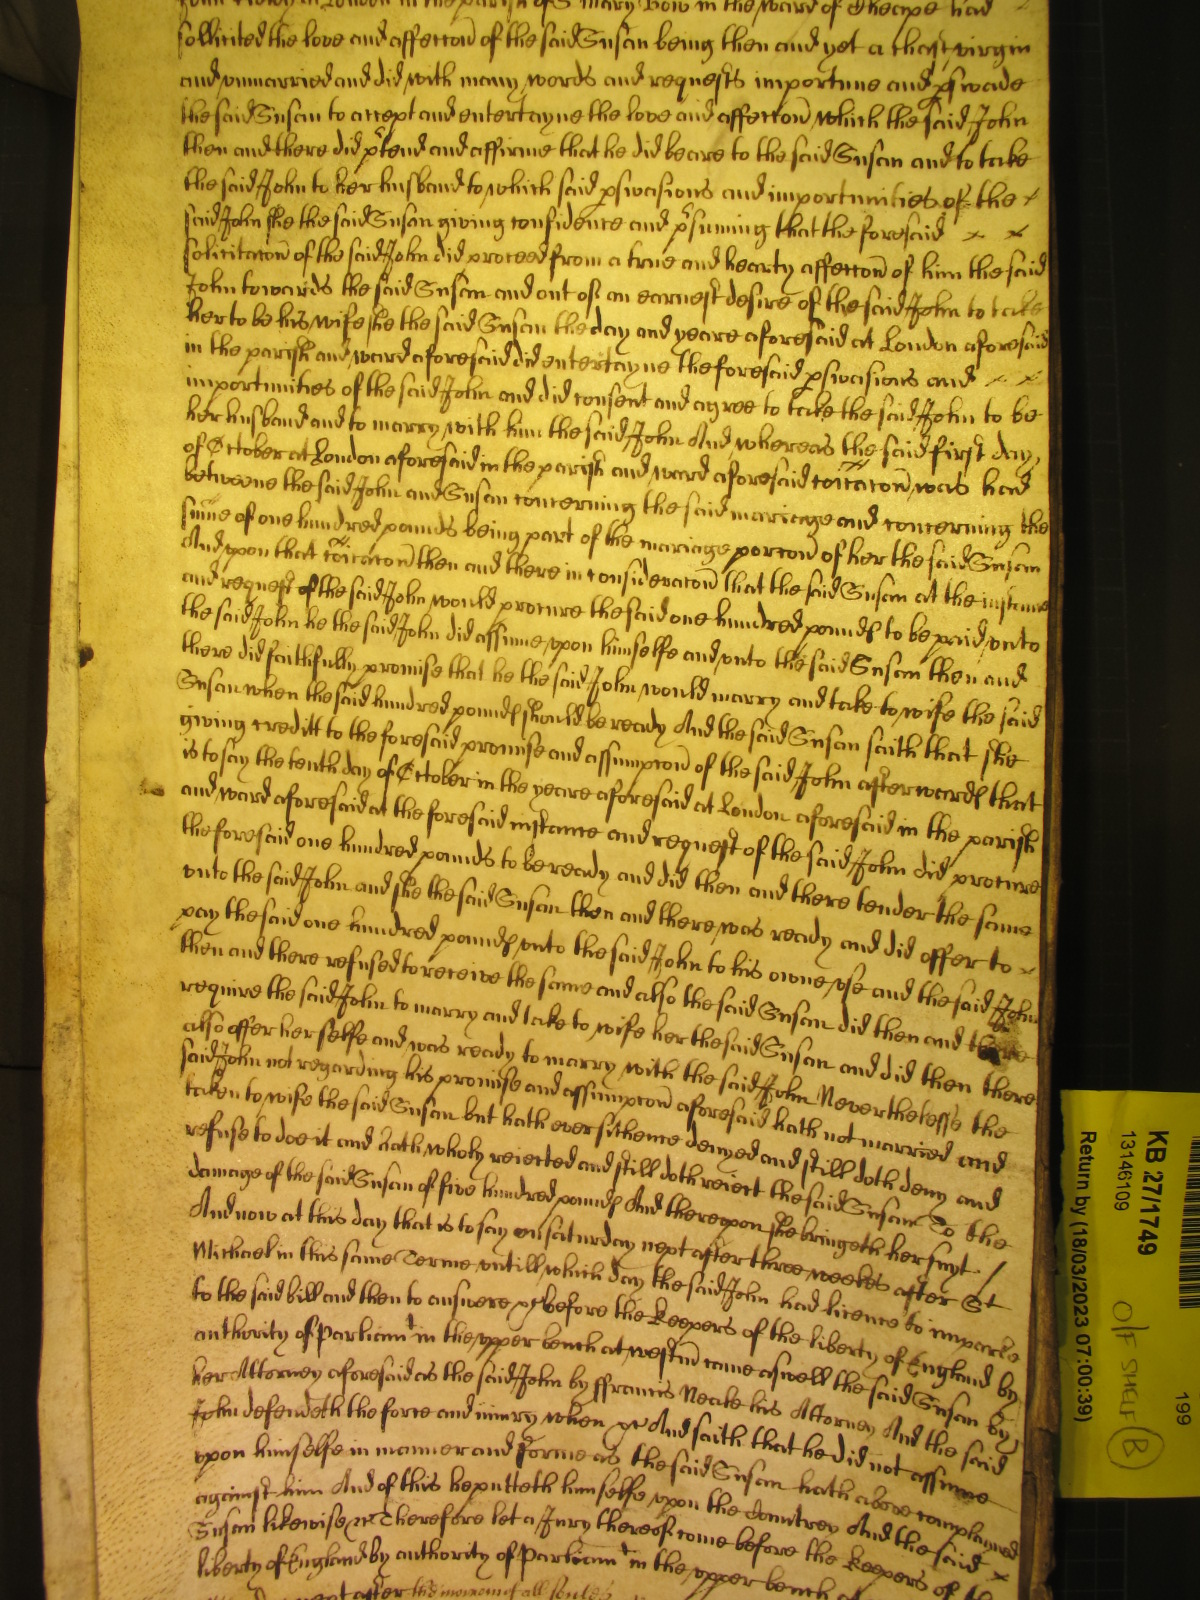 in London in the parish of S mary Bow in the ward of Cheape had
sollicited the love and affeccon of the said Susan being then and yet a chast virgin
and vnmarried and did with many words and requests importune and pswade
the said Susan to accept and entertayne the love and affeccon which the said John
then and there did ptend and affirme that he did beare to the said Susan and to take
the said John to her husband to which said pswasions and importunities of the
said John she the said Susan giving confidence and psuming that the foresaid
solicitacon of the said John did proceed from a true and hearty affeccon of him the said
John towards the said Susan and out of an earnest desire of the said John to take
her to be his wife she the said Susan the day and yeare aforesaid at London aforesaid
in the parish and ward aforesaid did entertayne the foresaid pswasions and
importunities of the said John and did consent and agree to take the said John to be
her husband and to marry with him the said John And whereas the said first day
of October at London aforesaid in the parish and ward aforesaid coicacon was had
betweene the said John and Susan concerning the said mariage and concerning the
sume of one hundred pounds being part of the mariage porcon of her the said Susan
And vpon that coicacon then and there in consideracon that the said Susan at the instance
and request of the said John would procure the said one hundred pounds to be paid vnto
the said John he the said John did assume vpon himselfe and vnto the said Susan then and
there did faithfully promise that he the said John would marry and take to wife the said
Susan when the said hundred pounds should be ready And the said Susan saith that she
giving creditt to the foresaid promise and assumpcon of the said John afterwards that
is to say the tenth day of October in the yeare aforesaid at London aforesaid in the parish
and ward aforesaid at the foresaid instance and request of the said John did procure
the foresaid one hundred pounds to be ready and did then and there tender the same
vnto the said John and she the said Susan then and there was ready and did offer to
pay the said one hundred pounds vnto the said John to his owne vse and the said John
then and there refused to receive the same and also the said Susan did then and there
require the said John to marry and take to wife her the said Susan and did then there
also offer her selfe and was ready to marry with the said John Neverthelesse the
said John not regarding his promise and assumpcon aforesaid hath not married and
taken to wife the said Susan but hath ever sithence denyed and still doth deny and
refuse to doe it and hath wholy reiected and still doth reiect the said Susan To the
damage of the said Susan of five hundred pounds And therevpon she bringeth her suyt /
And now at this day that is to say on saturday next after three weekes after St
Michael in this same Terme vntill which day the said John had licence to imparle
to the said bill and then to answere &c before the keepers of the liberty of England by
authority of Parliamt in the vpper bench at westm came aswell the said Susan by
her Attorney aforesaid as the said John by ffrancis Neale his Attorney And the said
John defendeth the force and iniury when &c And saith that he did not assume
vpon himselfe in manner and forme as the said Susan hath above complained
against him And of this he putteth himselfe vpon the Countrey And the said
Susan likewise &c Therefore let a Jury thereof come before the keepers of the
liberty of England by authority of Parliamt in the vpper bench
next after the morrow of all soules
KB 27/1749
13146109
Return by (18/03/2023 07:00:39)
199
O/F SHELF B